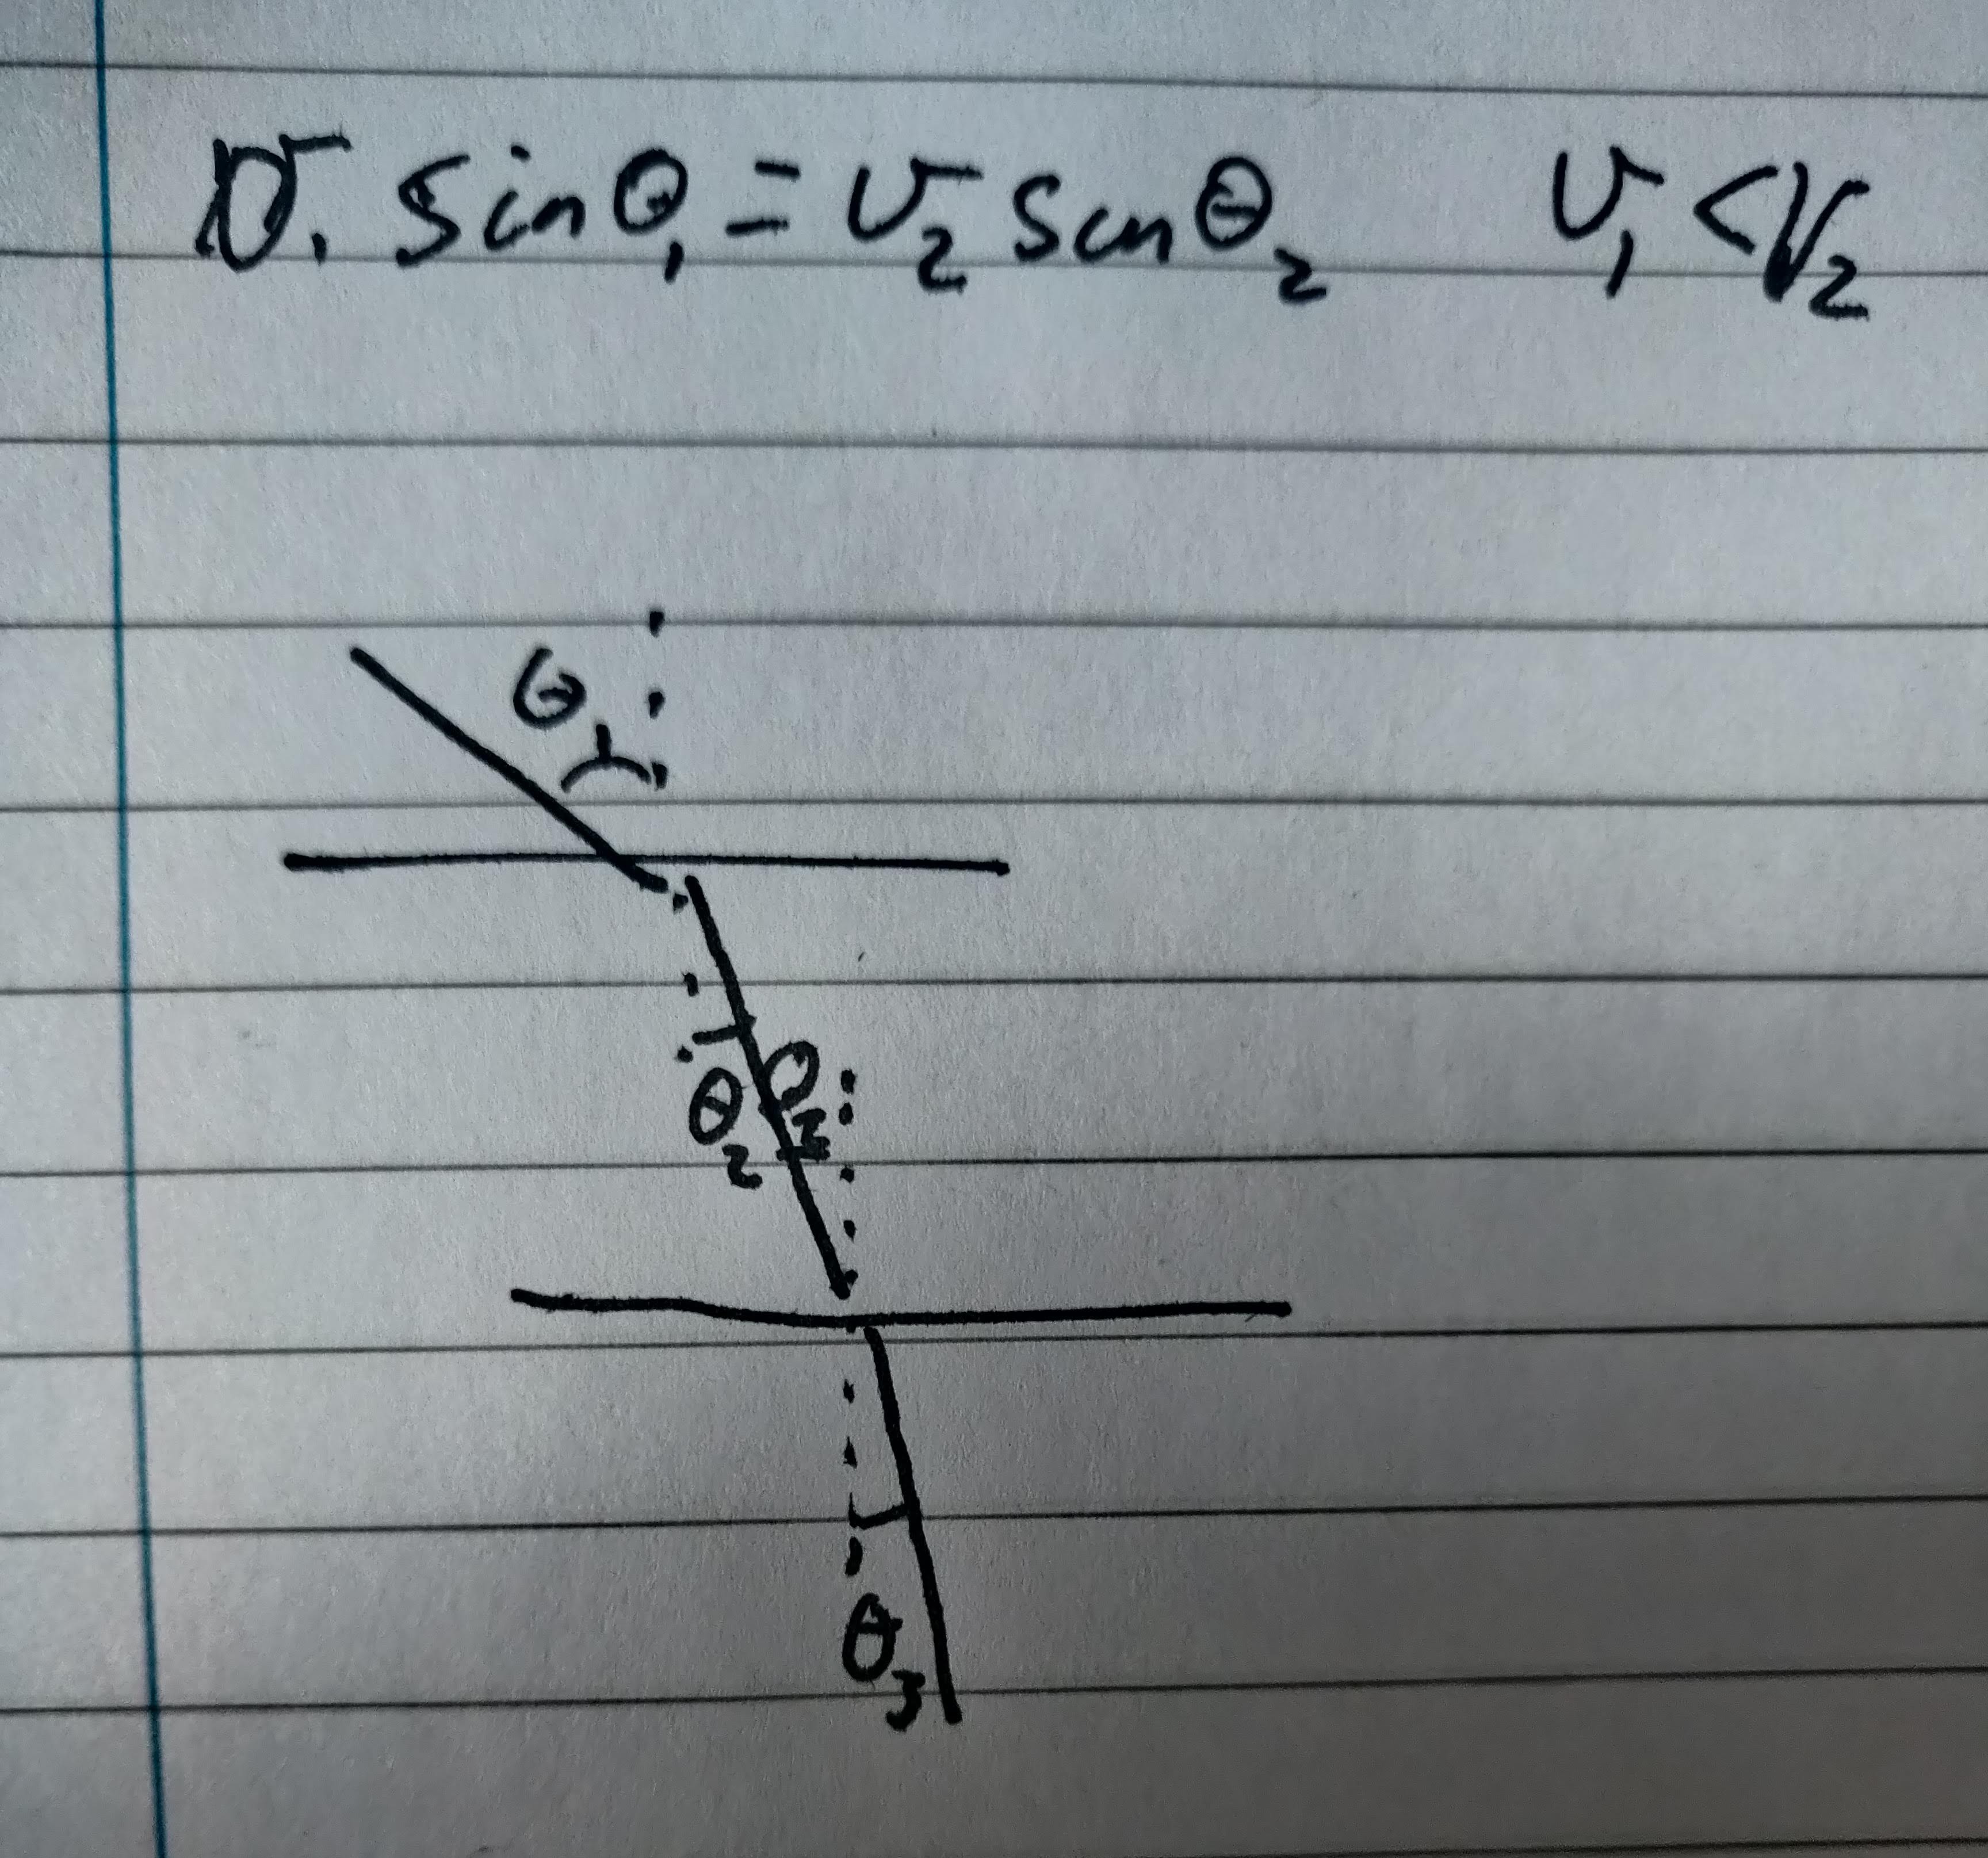 v₁ sinθ₁ = v₂ sinθ₂ v₁ < v₂
θ₁
θ₂ θ₂
θ₃